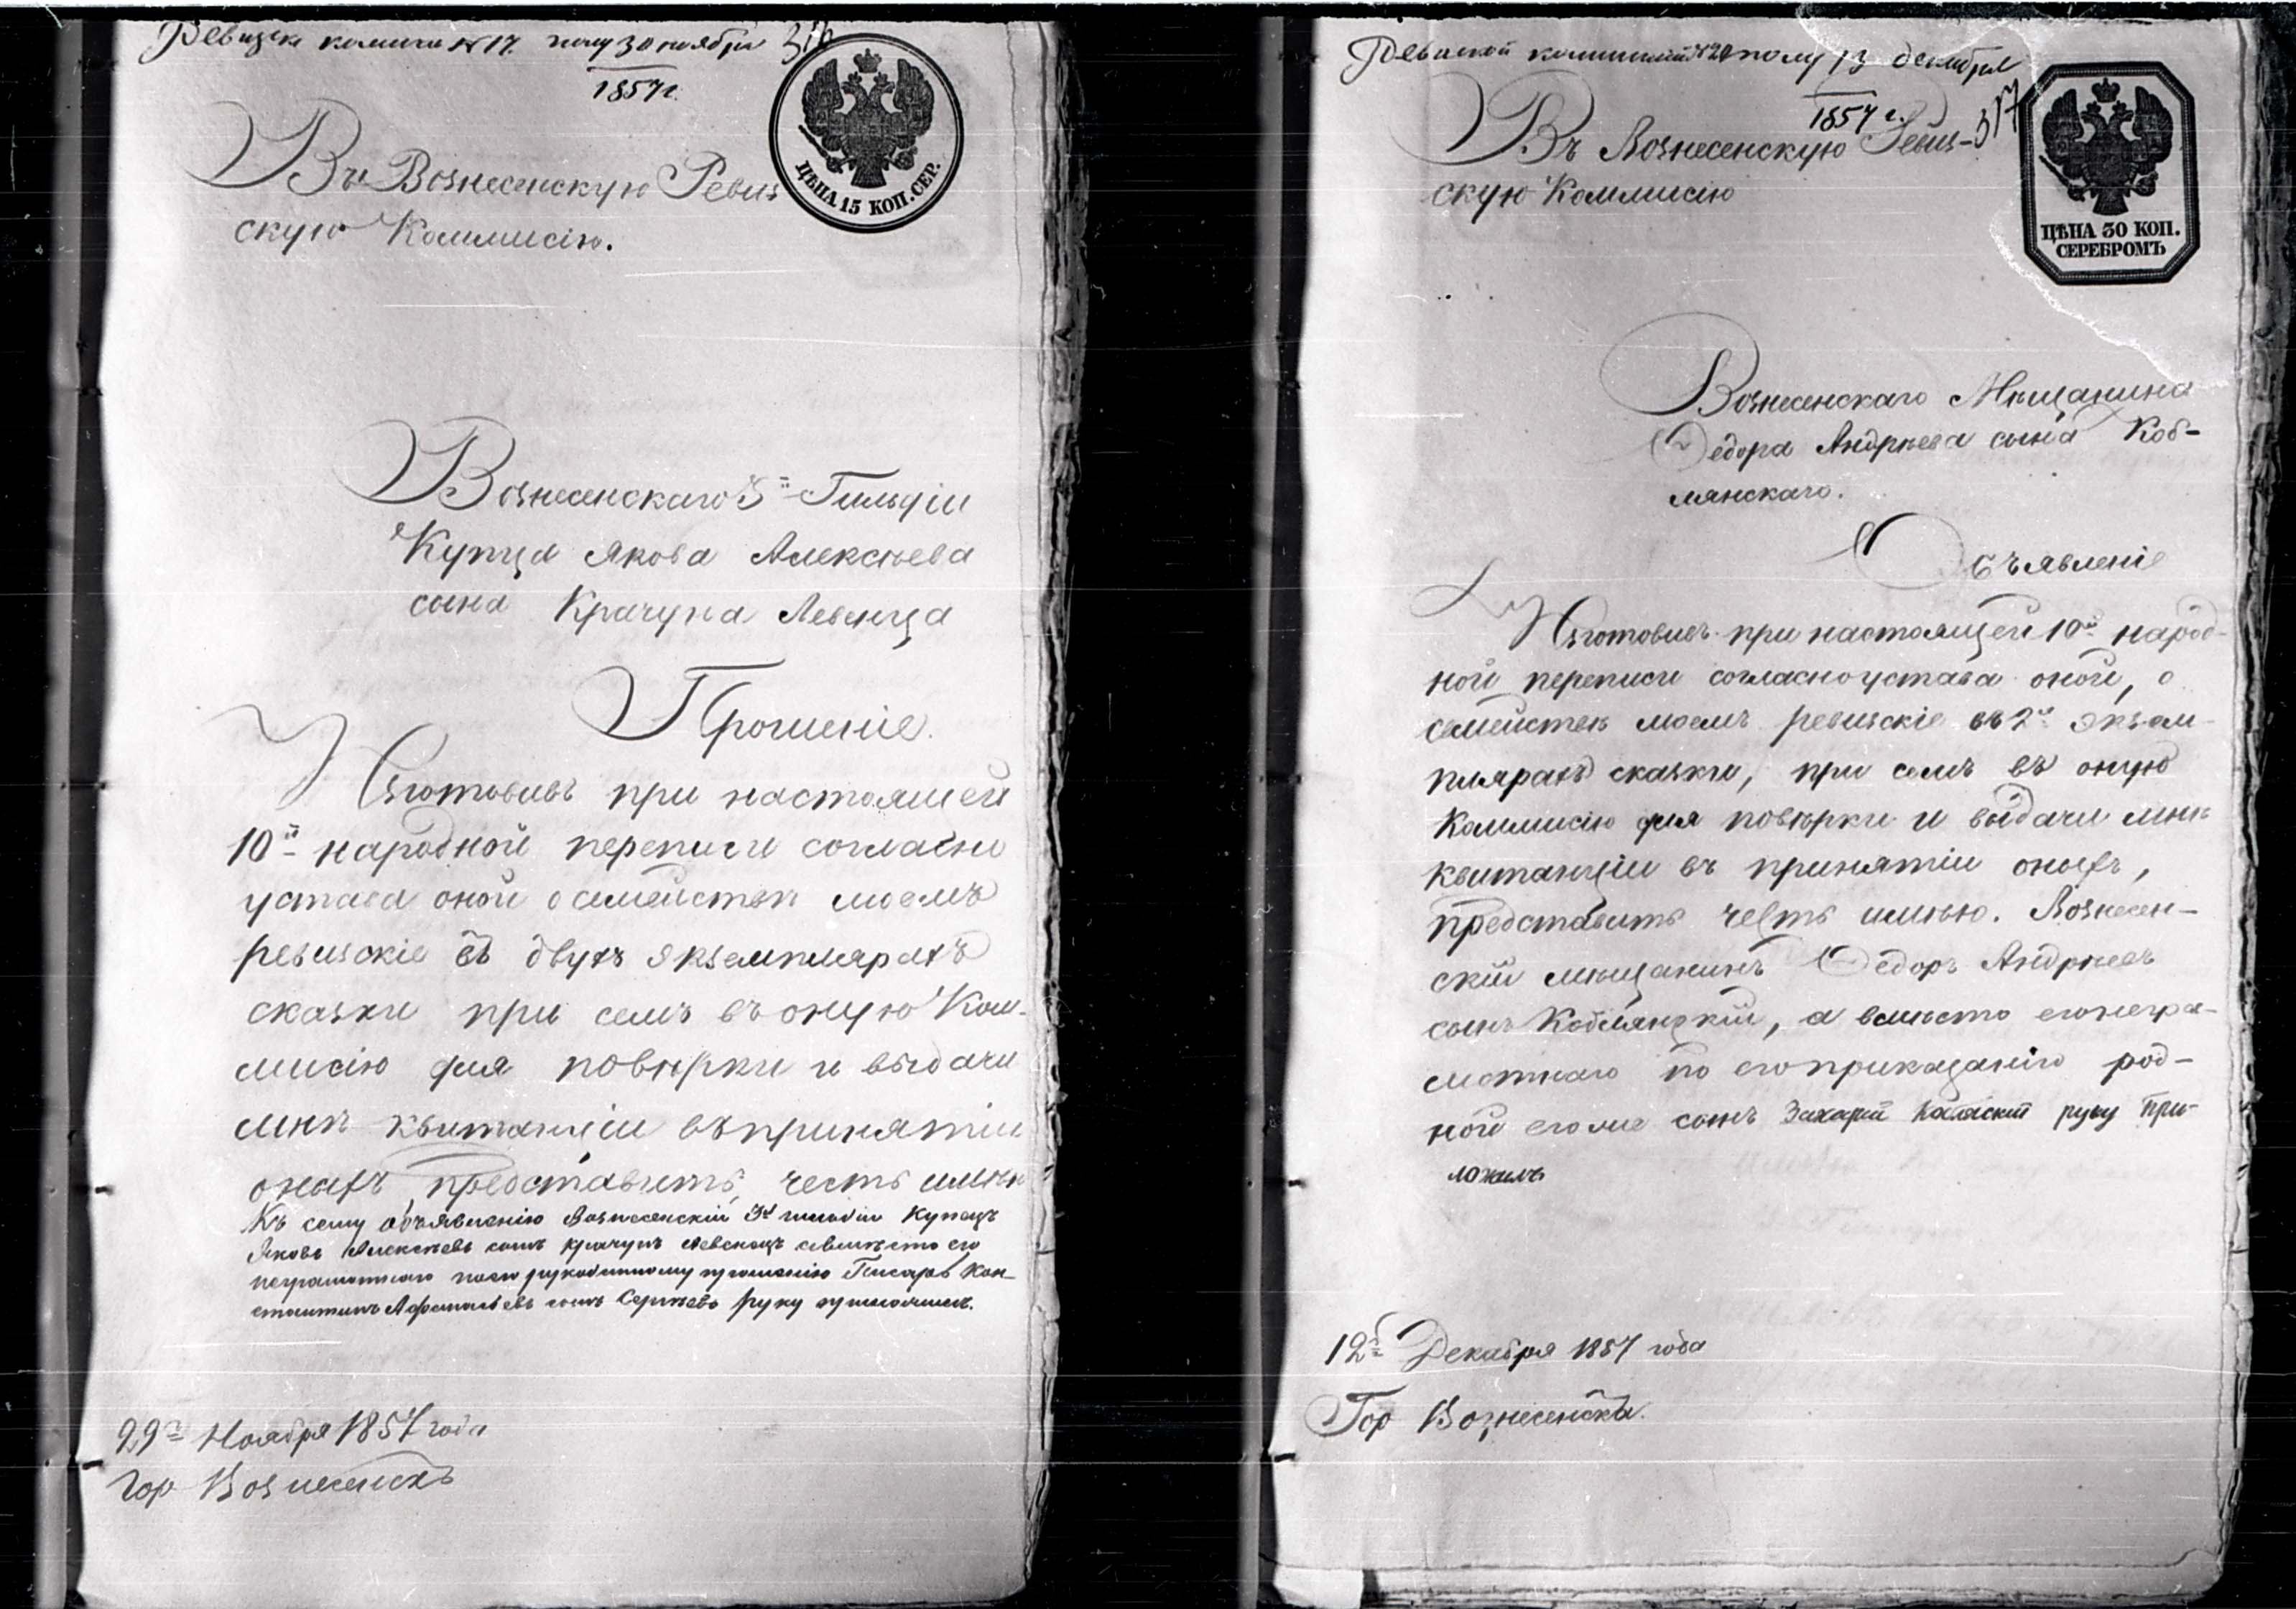 Ревизск комиси № 17. полу 30 ноября 316
1857 г.
ЦѢНА 15 КОП. СЕР.
Въ Вознесенскую Ревиз
скую Коммисію.
Вознесенскаго 3й Гильдіи
Купца Якова Алексѣева
сына Крачуна Левенца
Прошеніе.
Изготовивъ при настоящей
10й народной переписи согласно
устава оной о семействѣ моемъ
ревизскіе въ двухъ экземплярахъ
сказки при семъ въ оную Ком-
мисію для повѣрки и выдачи
мнѣ квитанціи въ принятіи
оныхъ, представить честь имѣю
Къ сему объявленію Вознесенскій 3й гильдіи Купецъ
Яковъ Алексѣевъ сынъ Крачунъ Левенецъ а вмѣсто его
неграмотнаго по его рукоданному прошенію Писарь Кон-
стантинъ Афанасьевъ сынъ Сергѣевъ руку приложилъ.
29го Ноября 1857 года
Гор Вознесенскъ
Ревизской коммисіи № 20 полу 13 декабря
1857 г.
317
ЦѢНА 30 КОП.
СЕРЕБРОМЪ
Въ Вознесенскую Ревиз-
скую Коммисію
Вознесенскаго Мѣщанина
Федора Андрѣева сына Коб-
лянскаго.
Объявленіе
Изготовивъ при настоящей 10й народ-
ной переписи согласно устава оной, о
семействѣ моемъ ревизскіе въ 2хъ экзем-
плярахъ сказки, при семъ въ оную
Коммисію для повѣрки и выдачи мнѣ
квитанціи въ принятіи оныхъ,
представить честь имѣю. Вознесен-
скій мѣщанинъ Федоръ Андрѣевъ
сынъ Коблянскій, а вмѣсто его негра-
мотнаго по его приказанію род-
ной его же сынъ Захарій руку при-
ложилъ
12го Декабря 1857 года
Гор Вознесенскъ.